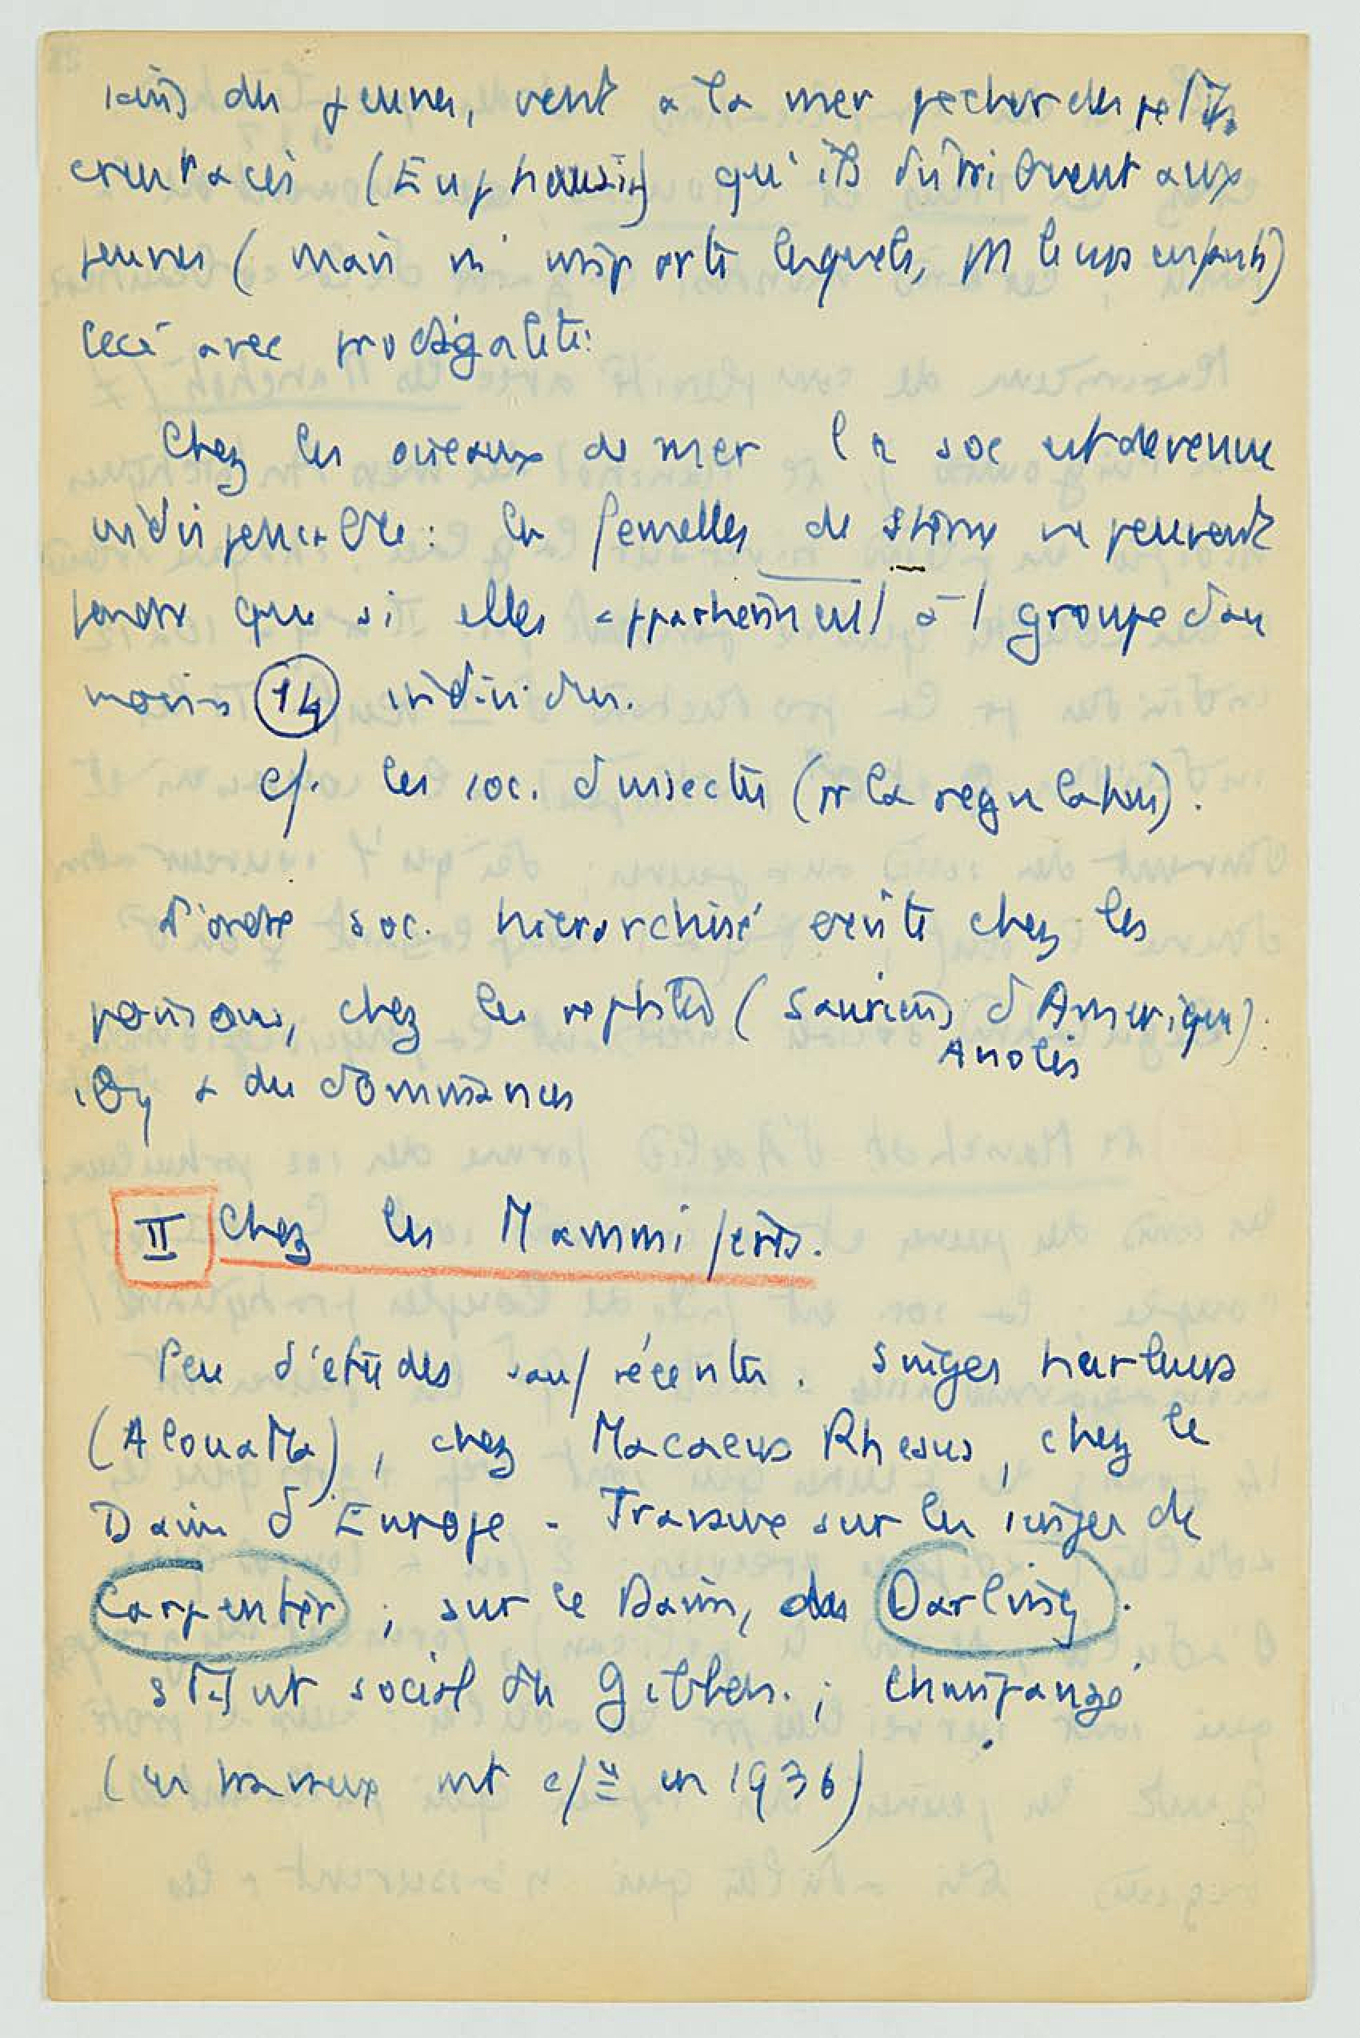 soins des jeunes, vont à la mer pecher des petits
crustacés (Euphausia) qu'ils distribuent aux
jeunes (mais n'importe lesquels, leurs enfants)
ceci avec prodigalité.
Chez les oiseaux de mer la soc est devenue
indispensable: les femelles de sterne ne peuvent
pondre que si elles appartiennent à 1 groupe d'au
moins 14 individus.
cf. les soc. d'insectes (pr la regulation).
L'ordre soc. hierarchisé existe chez les
poissons, chez les reptiles (Sauriens d'Amerique).
Anolis
il y a des dominances
II Chez les Mammifères.
Peu d'études sauf récentes. Singes hurleurs
(Alouatta), chez Macacus Rhesus, chez le
Daim d'Europe - Travaux sur les singes de
Carpenter ; sur le Daim, de Darling.
Statut social du Gibbon. ; Chimpanzé
(ces travaux ont en 1936)